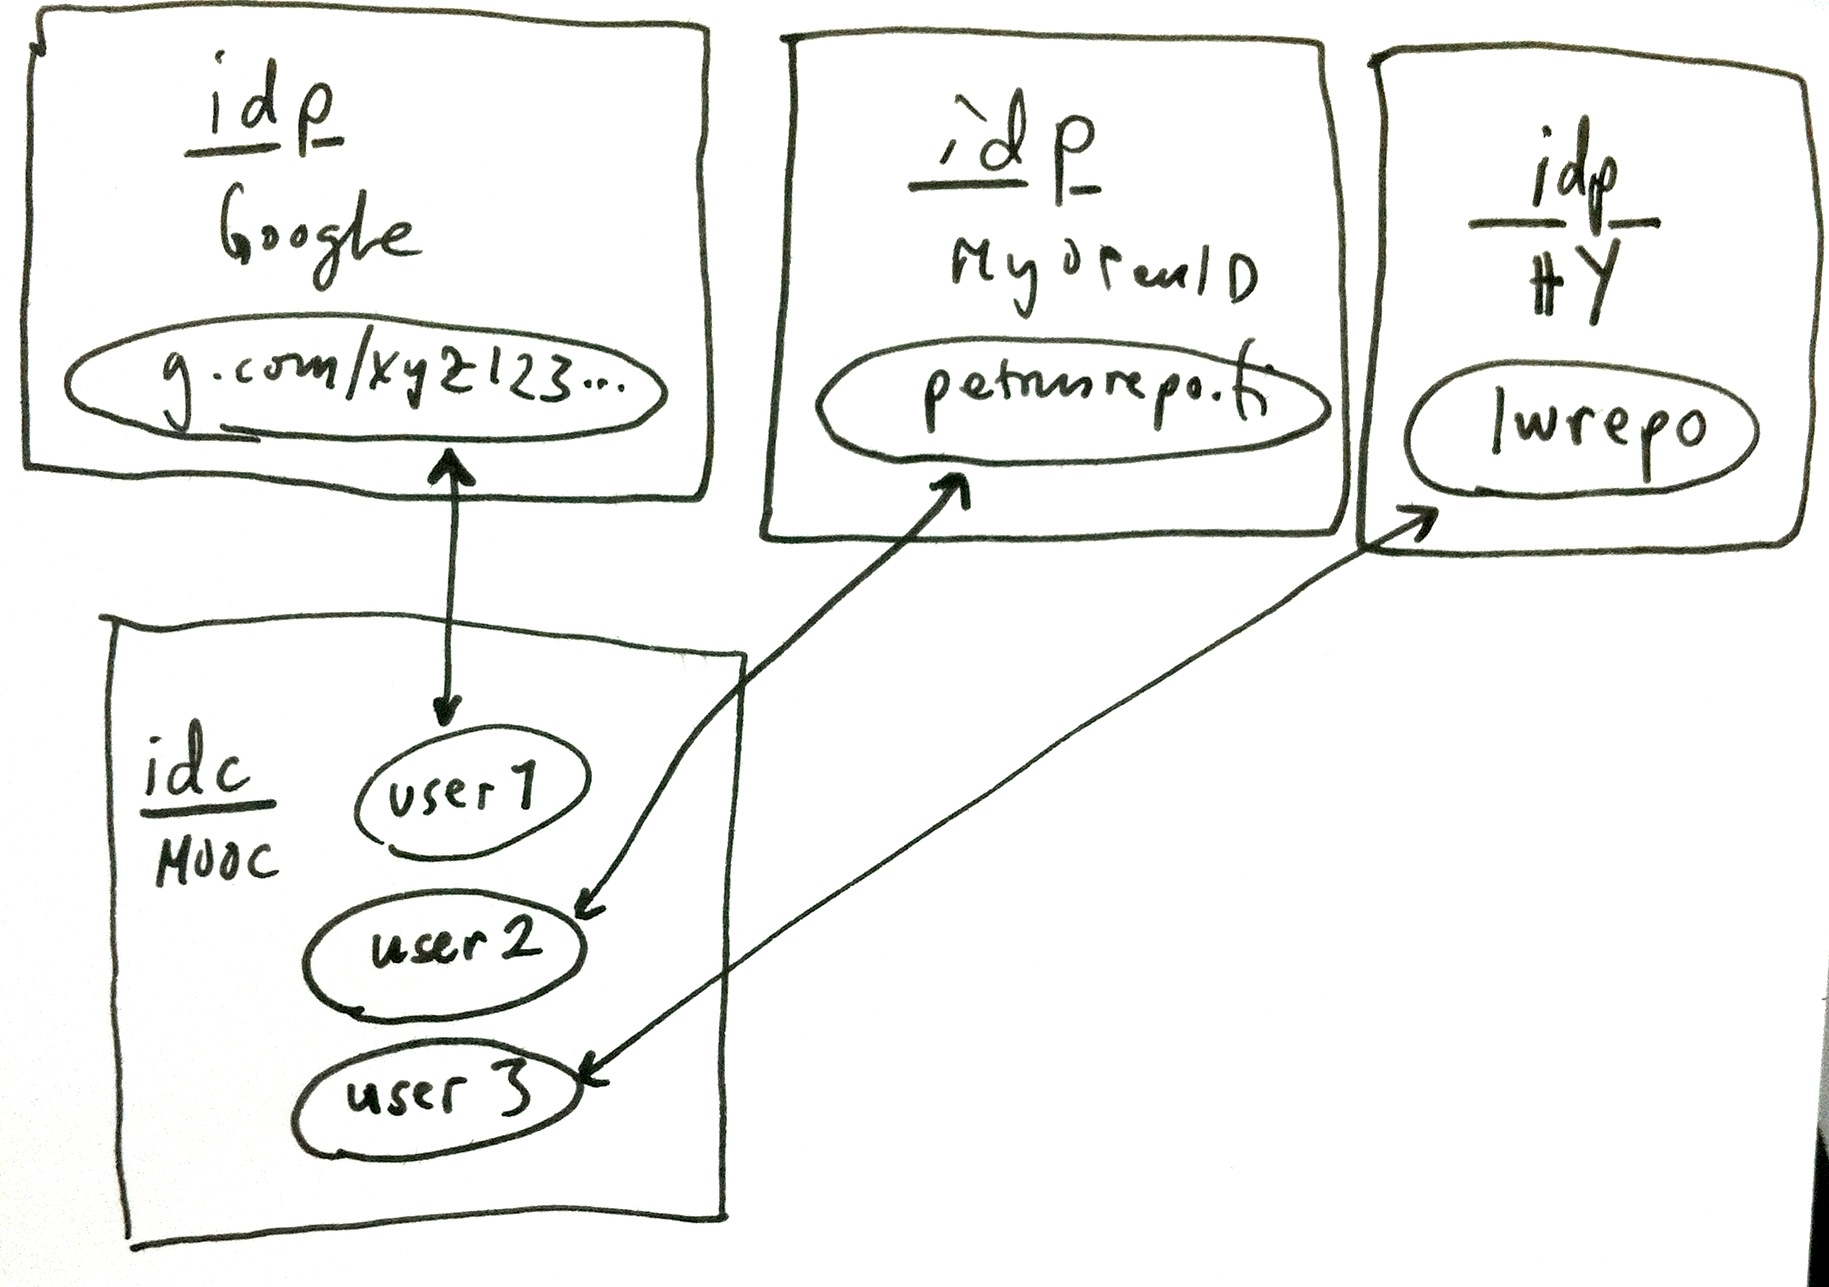 idp
Google
g.com/xyz123...
idp
MyOpenID
petrusrepo.fi
idp
HY
lwrepo
idc
MOOC
user 1
user 2
user 3